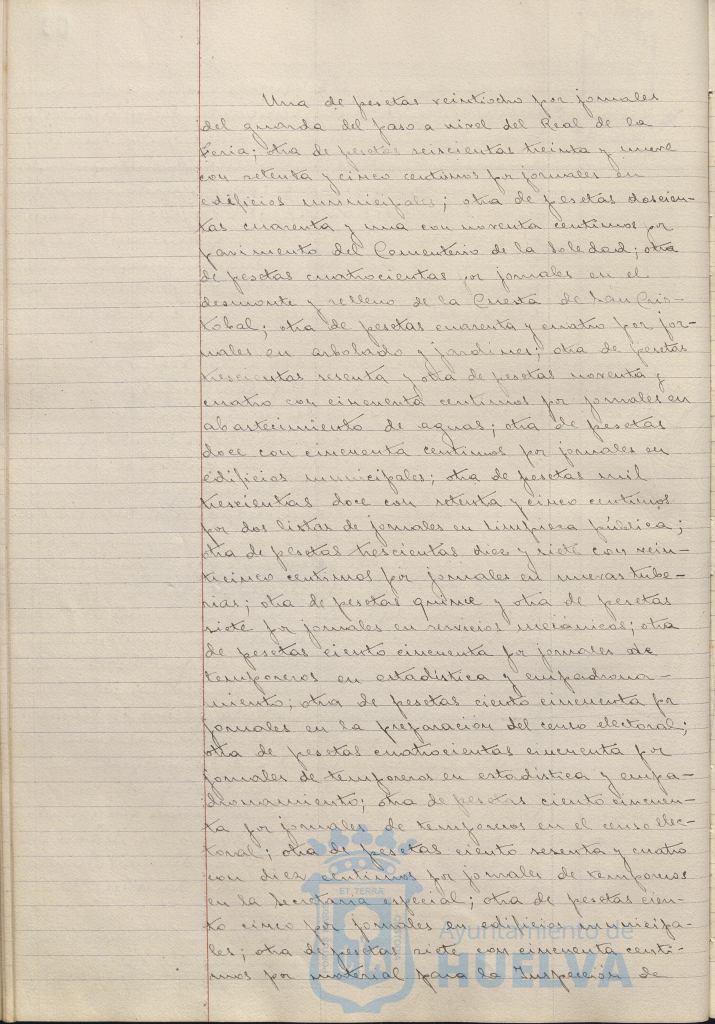 Una de pesetas veintiocho por jornales
del guarda del paso a nivel del Real de la
Feria; otra de pesetas seiscientas treinta y nueve
con setenta y cinco centimos por jornales en
edificios municipales; otra de pesetas doscien-
tas cuarenta y una con noventa centimos por
pavimento del Cementerio de la Soledad; otra
de pesetas cuatrocientas por jornales en el
desmonte y relleno de la Cuesta de San Cris-
tobal; otra de pesetas cuarenta y cuatro por jor-
nales en arbolado y jardines; otra de pesetas
trescientas sesenta y otra de pesetas noventa y
cuatro con cincuenta centimos por jornales en
abastecimiento de aguas; otra de pesetas
doce con cincuenta centimos por jornales en
edificios municipales; otra de pesetas mil
trescientas doce con setenta y cinco centimos
por dos listas de jornales en limpieza pública;
otra de pesetas trescientas diez y siete con vein-
ticinco centimos por jornales en nuevas tube-
rias; otra de pesetas quince y otra de pesetas
siete por jornales en servicios mecánicos; otra
de pesetas ciento cincuenta por jornales de
temporeros en estadística y empadrona-
miento; otra de pesetas ciento cincuenta por
jornales en la preparación del censo electoral;
otra de pesetas cuatrocientas cincuenta por
jornales de temporeros en estadística y empa-
dronamiento; otra de pesetas ciento cincuen-
ta por jornales de temporeros en el censo elec-
toral; otra de pesetas ciento sesenta y cuatro
con diez centimos por jornales de temporeros
en la Secretaria especial; otra de pesetas cien-
to cinco por jornales en edificios municipa-
les; otra de pesetas siete con cincuenta centi-
mos por material para la Inspección de
ET TERRÆ
Ayuntamiento de
HUELVA